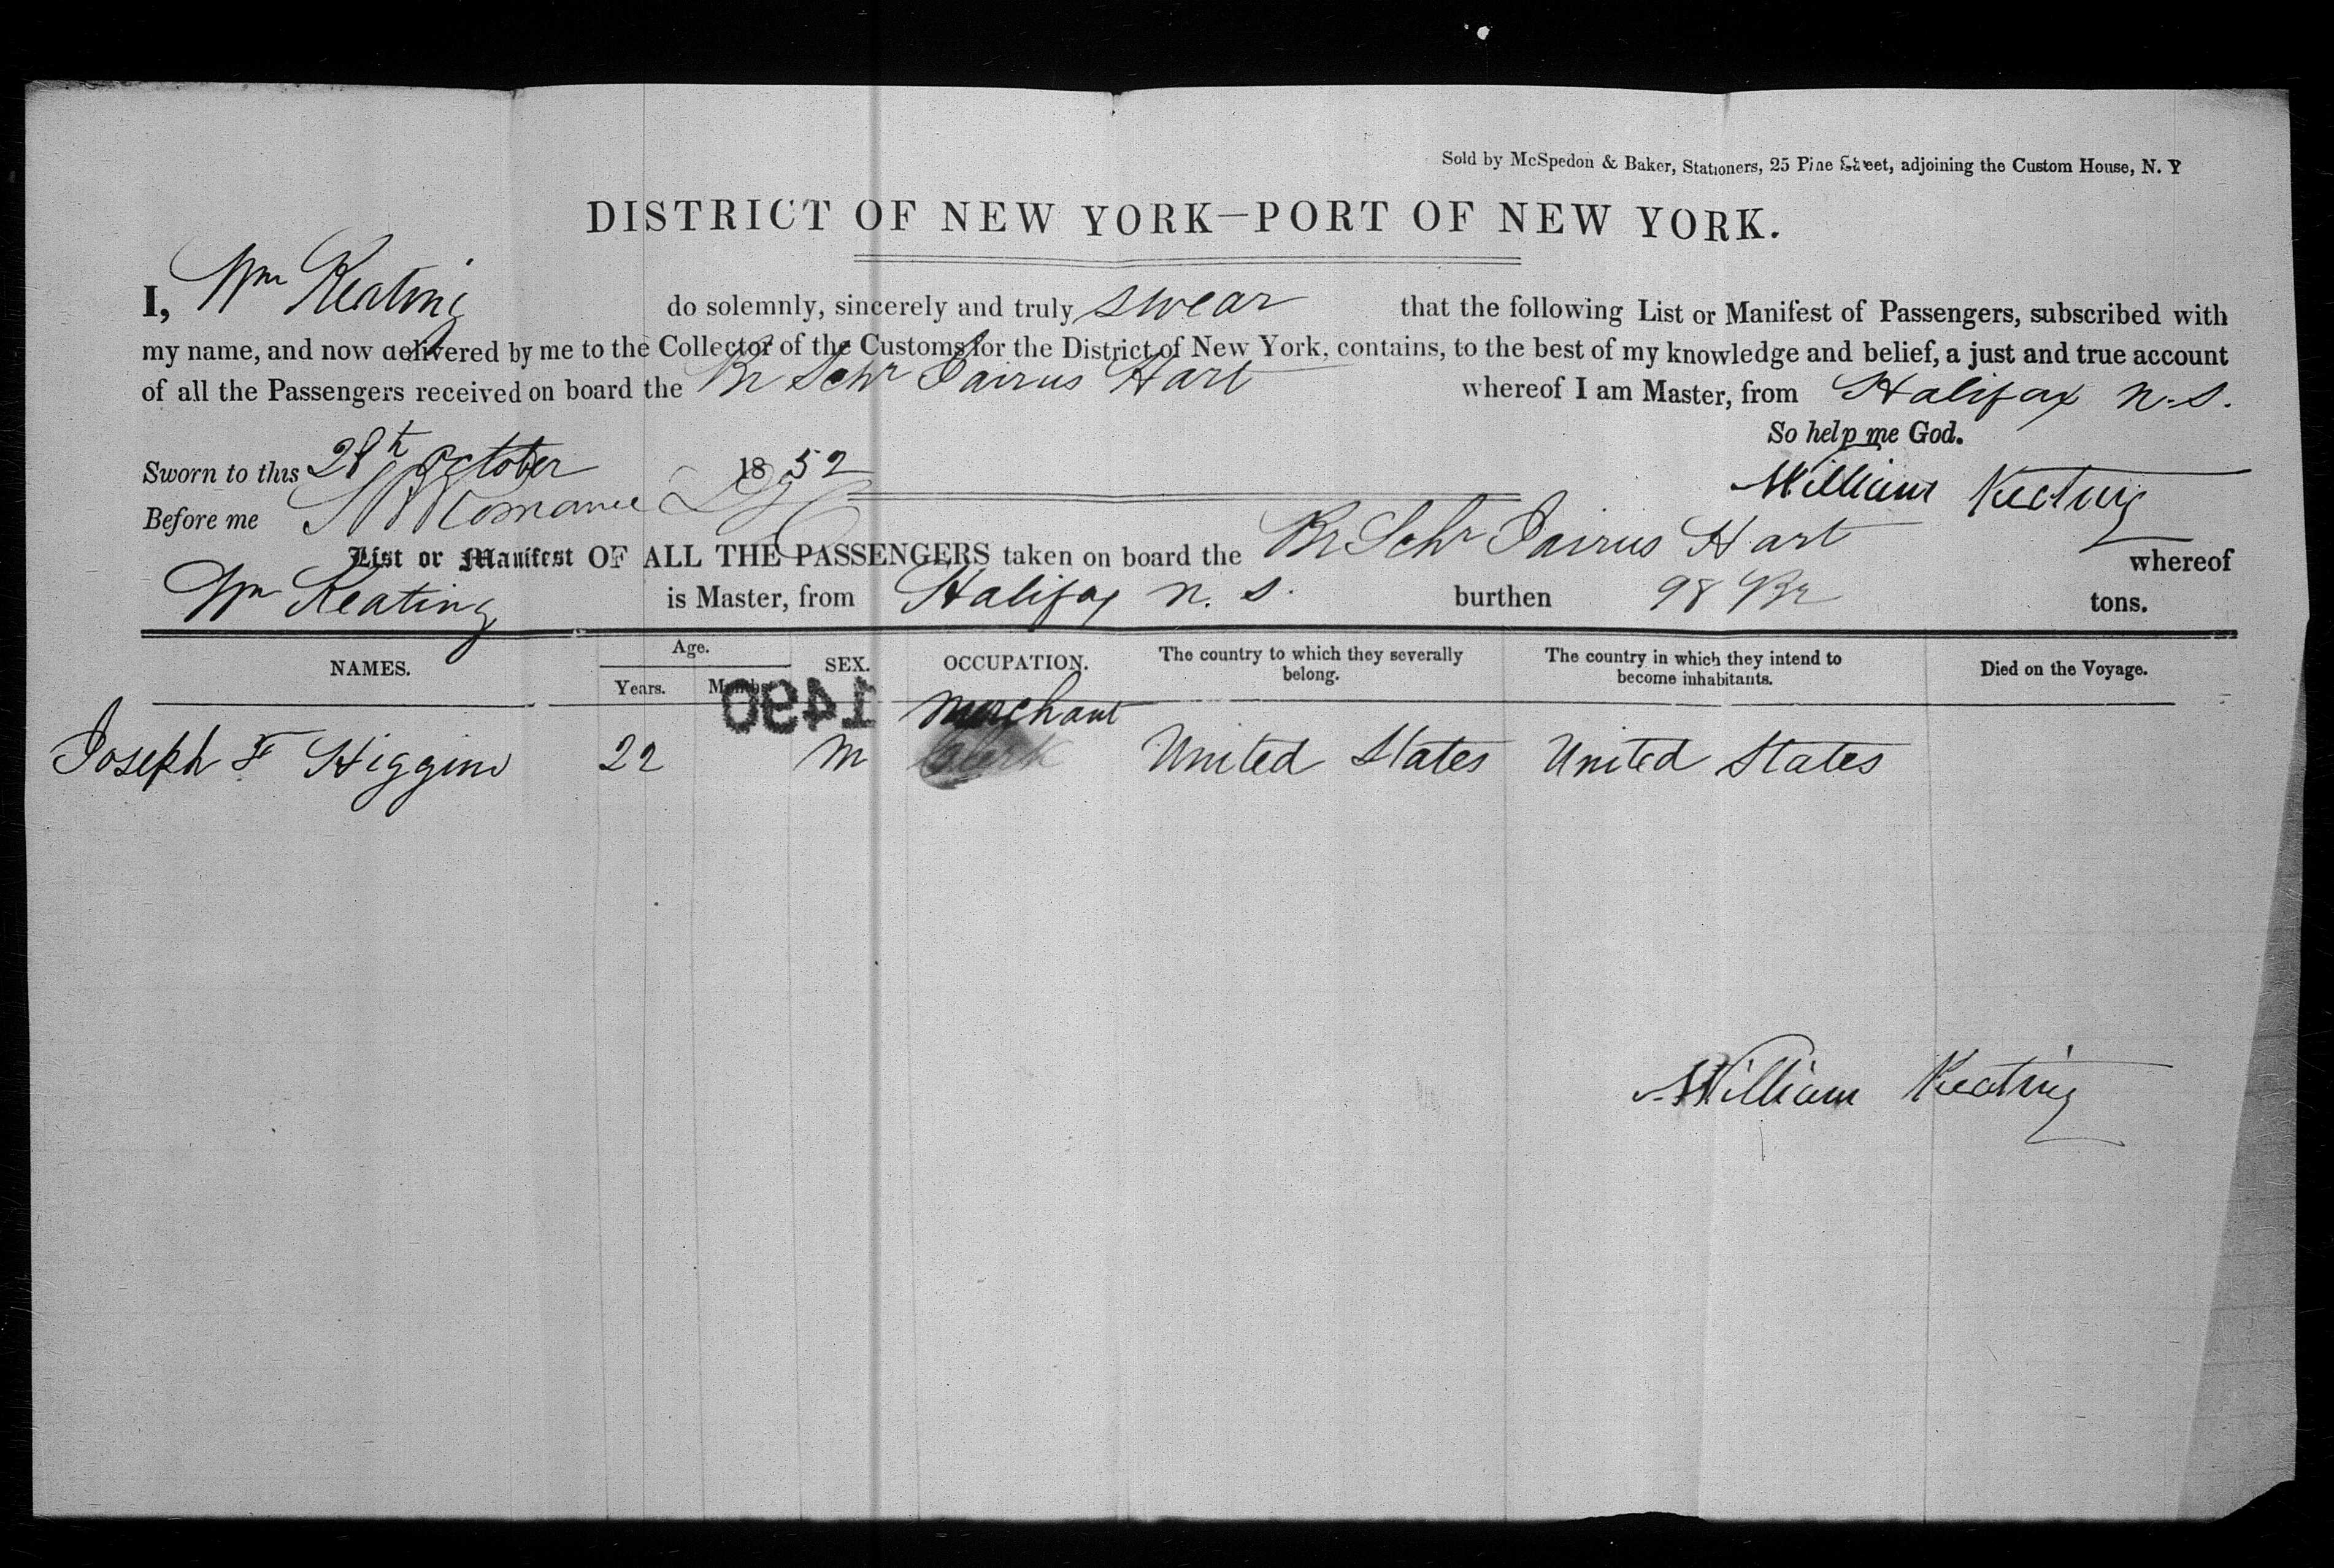 Sold by McSpedon & Baker, Stationers, 25 Pine Street, adjoining the Custom House, N. Y
DISTRICT OF NEW YORK—PORT OF NEW YORK.
I, Wm Keating do solemnly, sincerely and truly swear that the following List or Manifest of Passengers, subscribed with
my name, and now delivered by me to the Collector of the Customs for the District of New York, contains, to the best of my knowledge and belief, a just and true account
of all the Passengers received on board the Br Schr Jairus Hart whereof I am Master, from Halifax N.S.
So help me God.
Sworn to this 28th October 1852
William Keating
Before me
List or Manifest OF ALL THE PASSENGERS taken on board the Br Schr Jairus Hart whereof
Wm Keating is Master, from Halifax N. S. burthen 98 Br tons.
NAMES. Age. Years. Months SEX. OCCUPATION. The country to which they severally belong. The country in which they intend to become inhabitants. Died on the Voyage.
1490
Merchant
Joseph F Higgins 22 M Clerk United States United States
William Keating